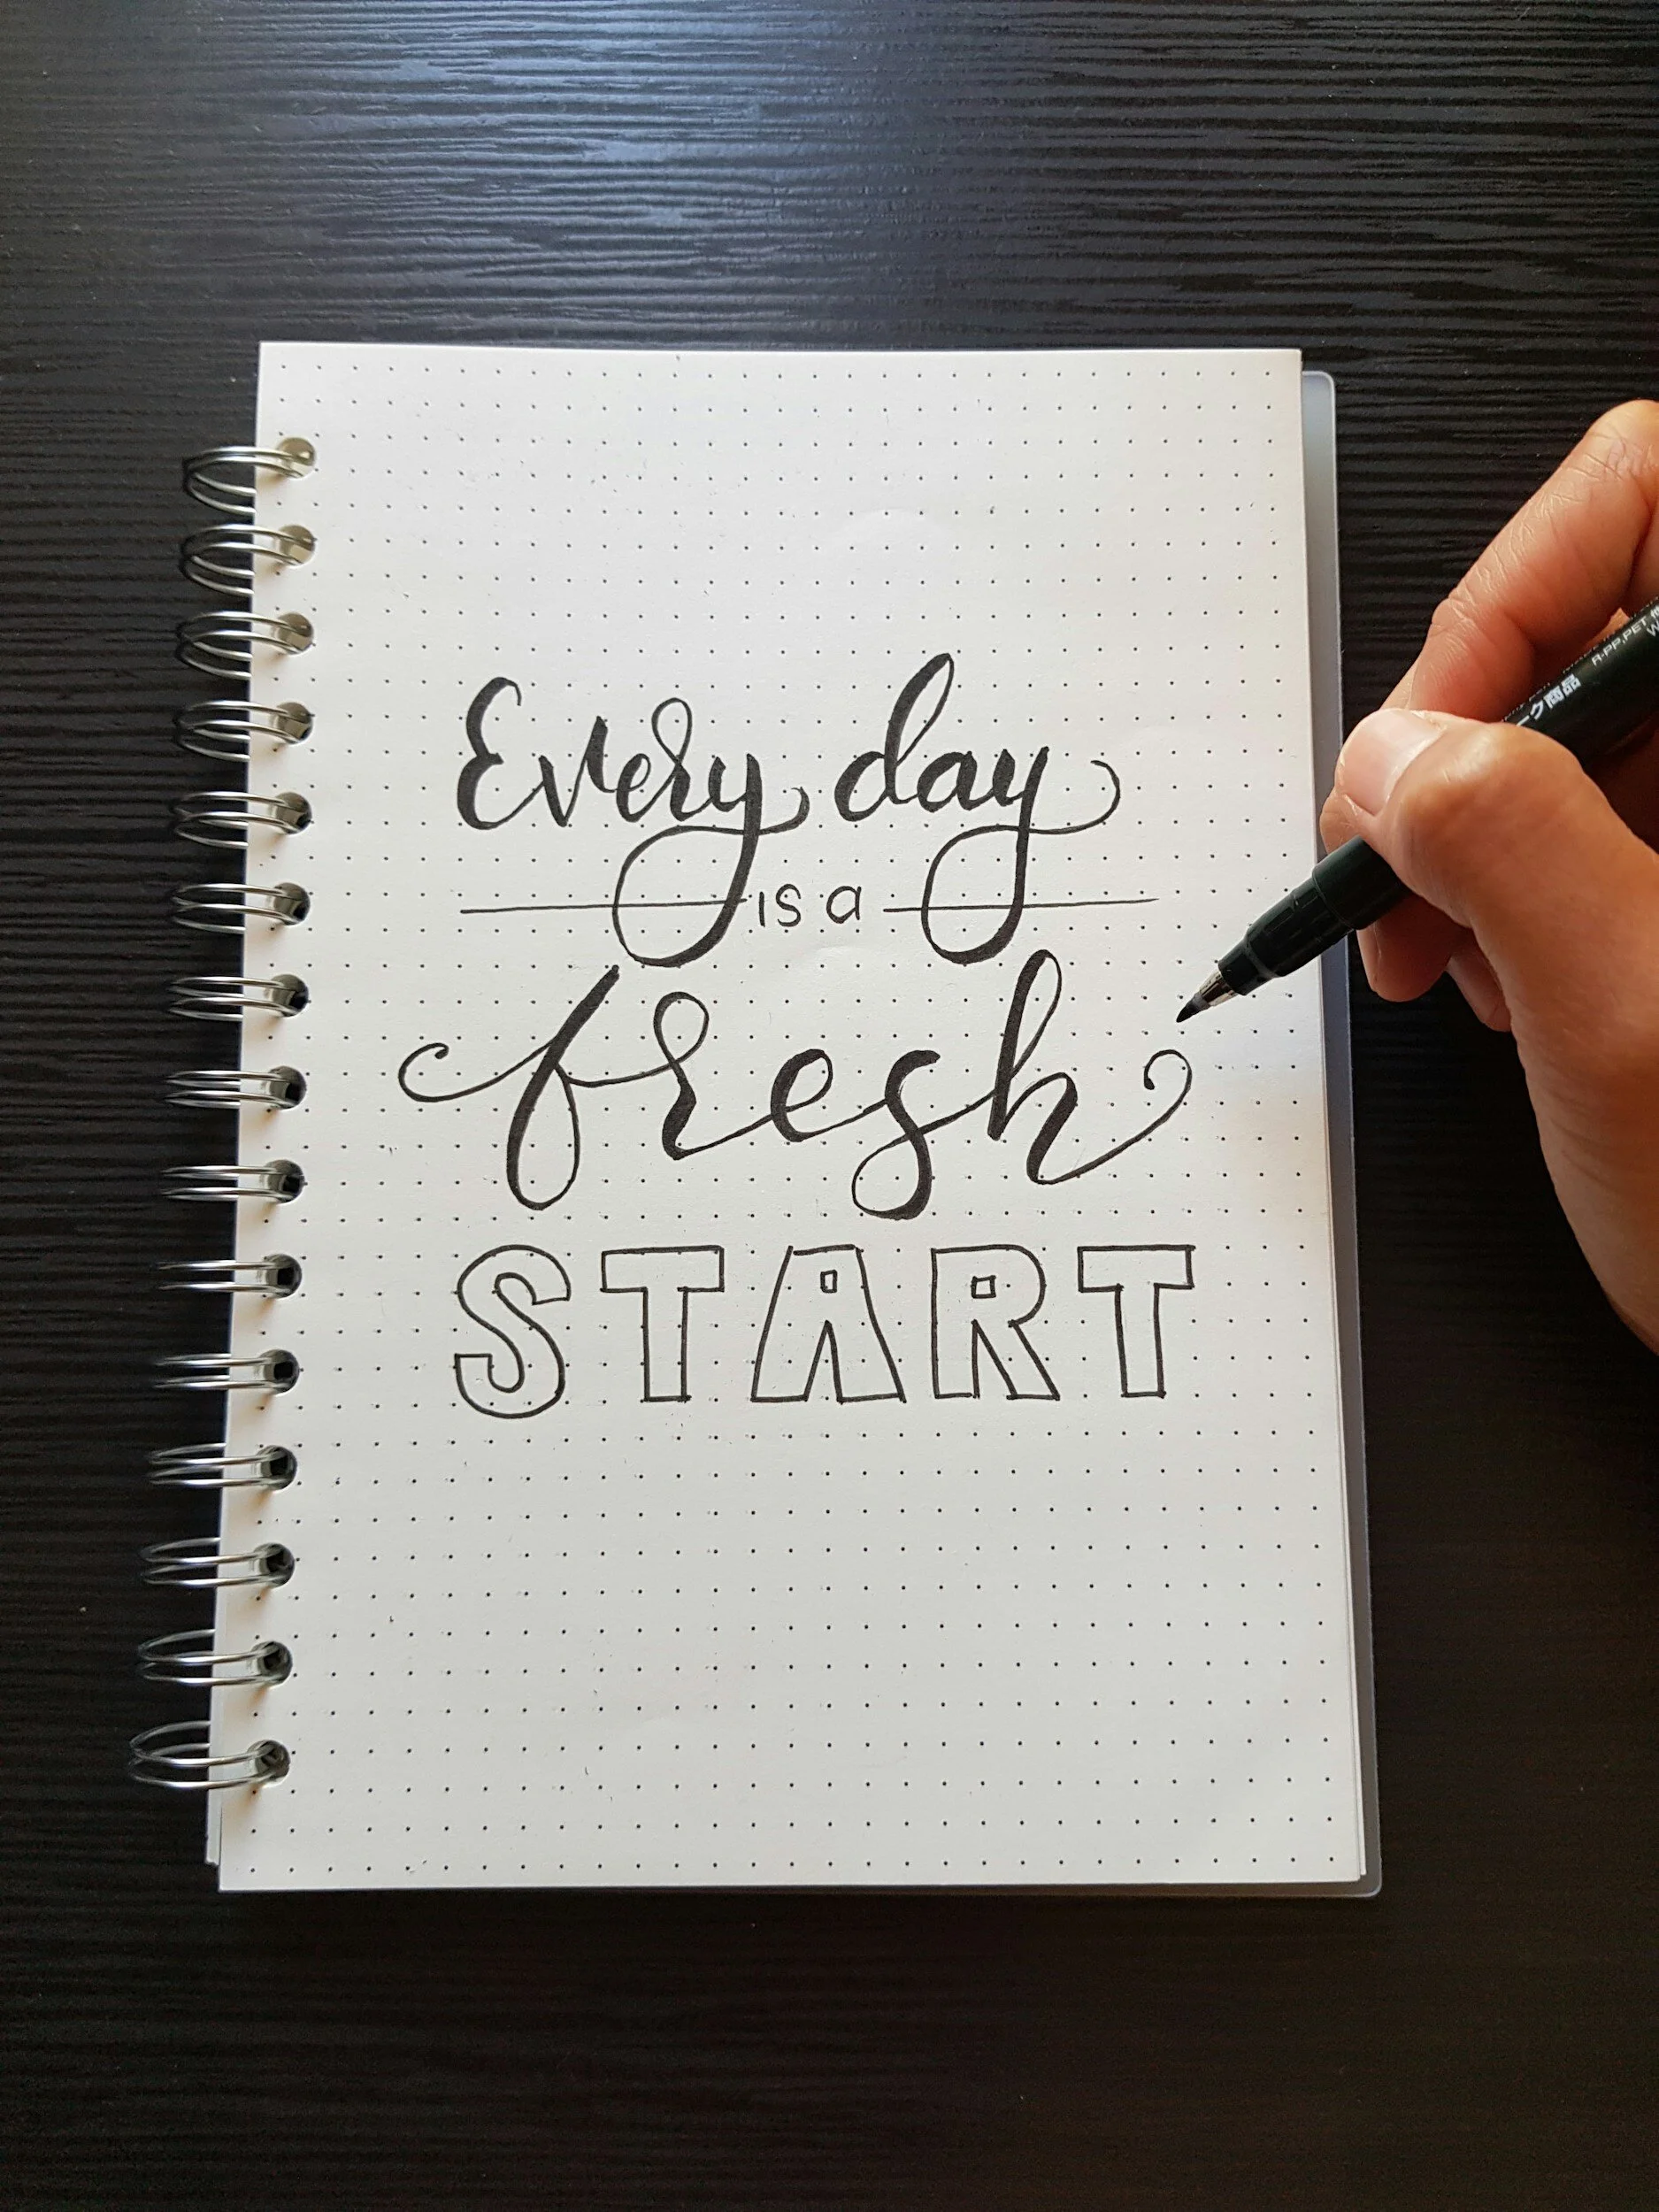 Every day
is a
fresh
START
ーク商品
R-PP,PET